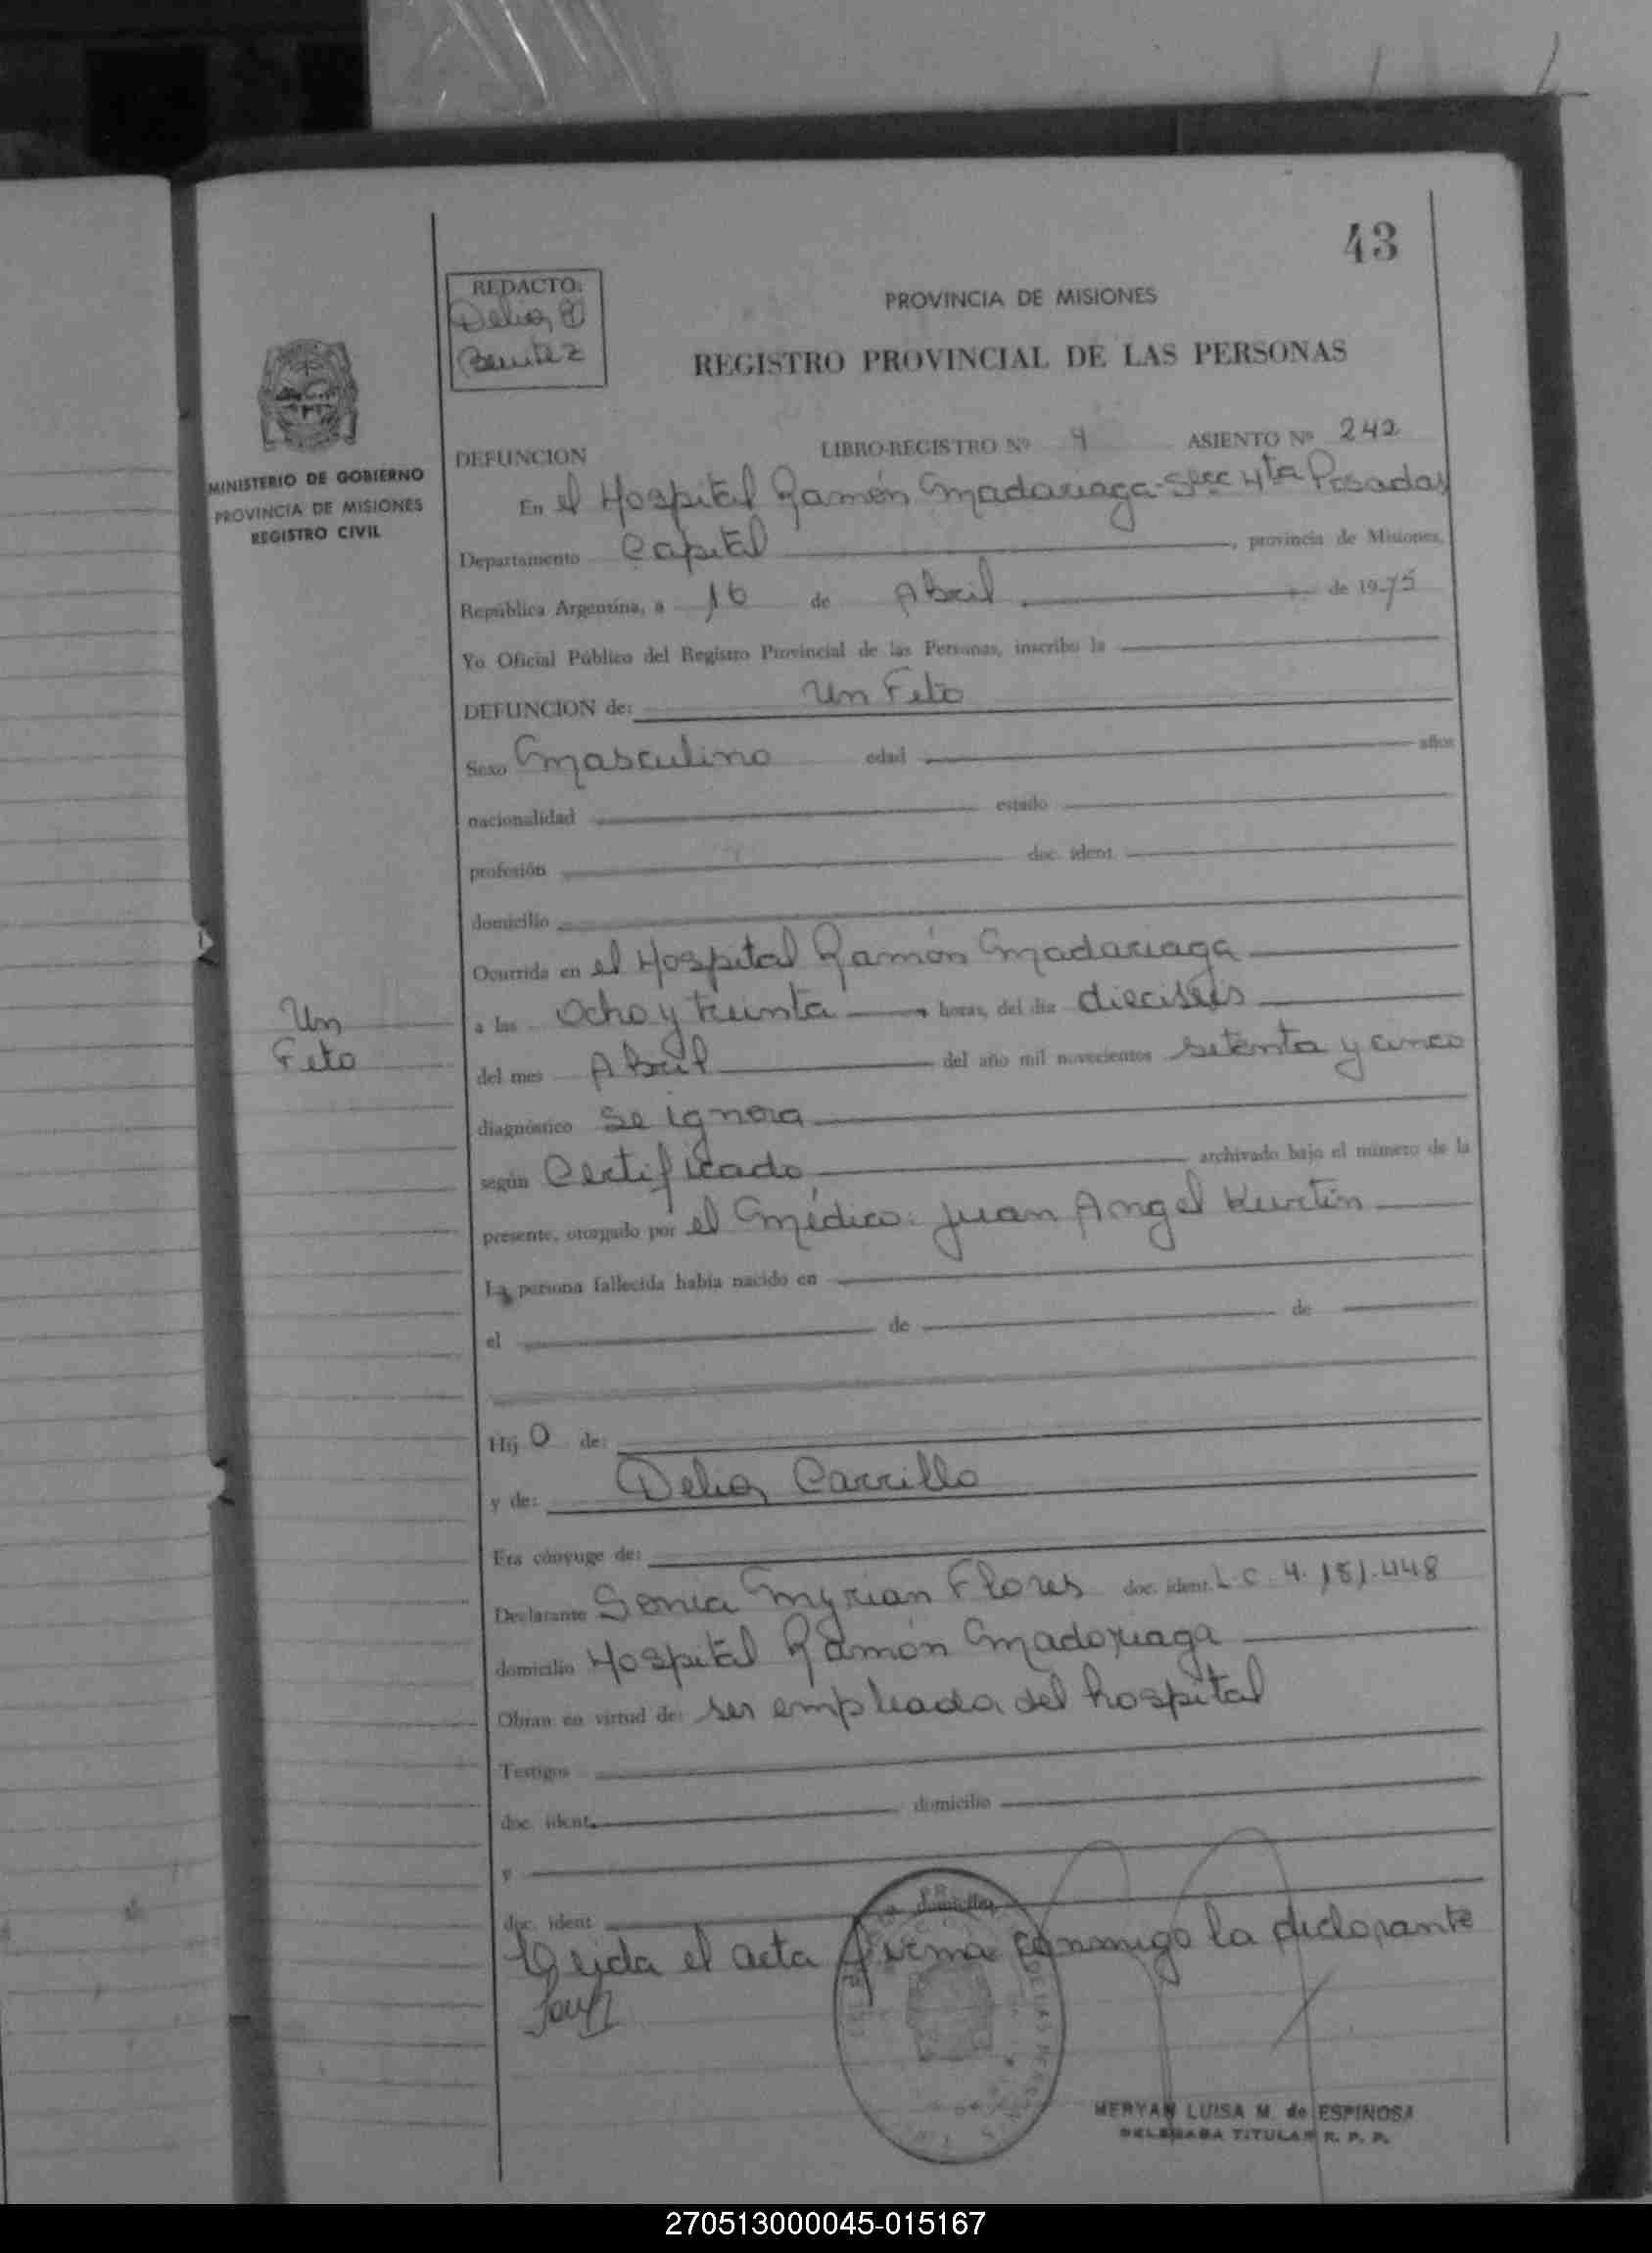 43
REDACTO:
Delia
Benitez
PROVINCIA DE MISIONES
REGISTRO PROVINCIAL DE LAS PERSONAS
MINISTERIO DE GOBIERNO
PROVINCIA DE MISIONES
REGISTRO CIVIL
DEFUNCION LIBRO-REGISTRO Nº 4 ASIENTO Nº 242
En el Hospital Ramón Madariaga-Secc 4ta Posadas
Departamento Capital, provincia de Misiones,
República Argentina, a 16 de Abril de 1975
Yo Oficial Público del Registro Provincial de las Personas, inscribo la
DEFUNCION de: Un Feto
Sexo Masculino edad años
nacionalidad estado
profesión doc. ident.
domicilio
Ocurrida en el Hospital Ramón Madariaga
a las Ocho y treinta horas, del día dieciseis
Un
Feto
del mes Abril del año mil novecientos setenta y cinco
diagnóstico se ignora
según Certificado archivado bajo el número de la
presente, otorgado por el Médico: Juan Angel Kurtin
La persona fallecida había nacido en
el de de
Hij o de:
y de: Delia Carrillo
Era cónyuge de:
Declarante Sonia Myrian Flores doc. ident. L.C. 4.151.448
domicilio Hospital Ramón Madariaga
Obran en virtud de: ser empleada del hospital
Testigos
doc. ident. domicilio
y
doc. ident domicilio
Leida el acta firma conmigo la declarante
DE LAS
MERYAN LUISA M. de ESPINOSA
DELEGADA TITULAR R. P. P.
270513000045-015167